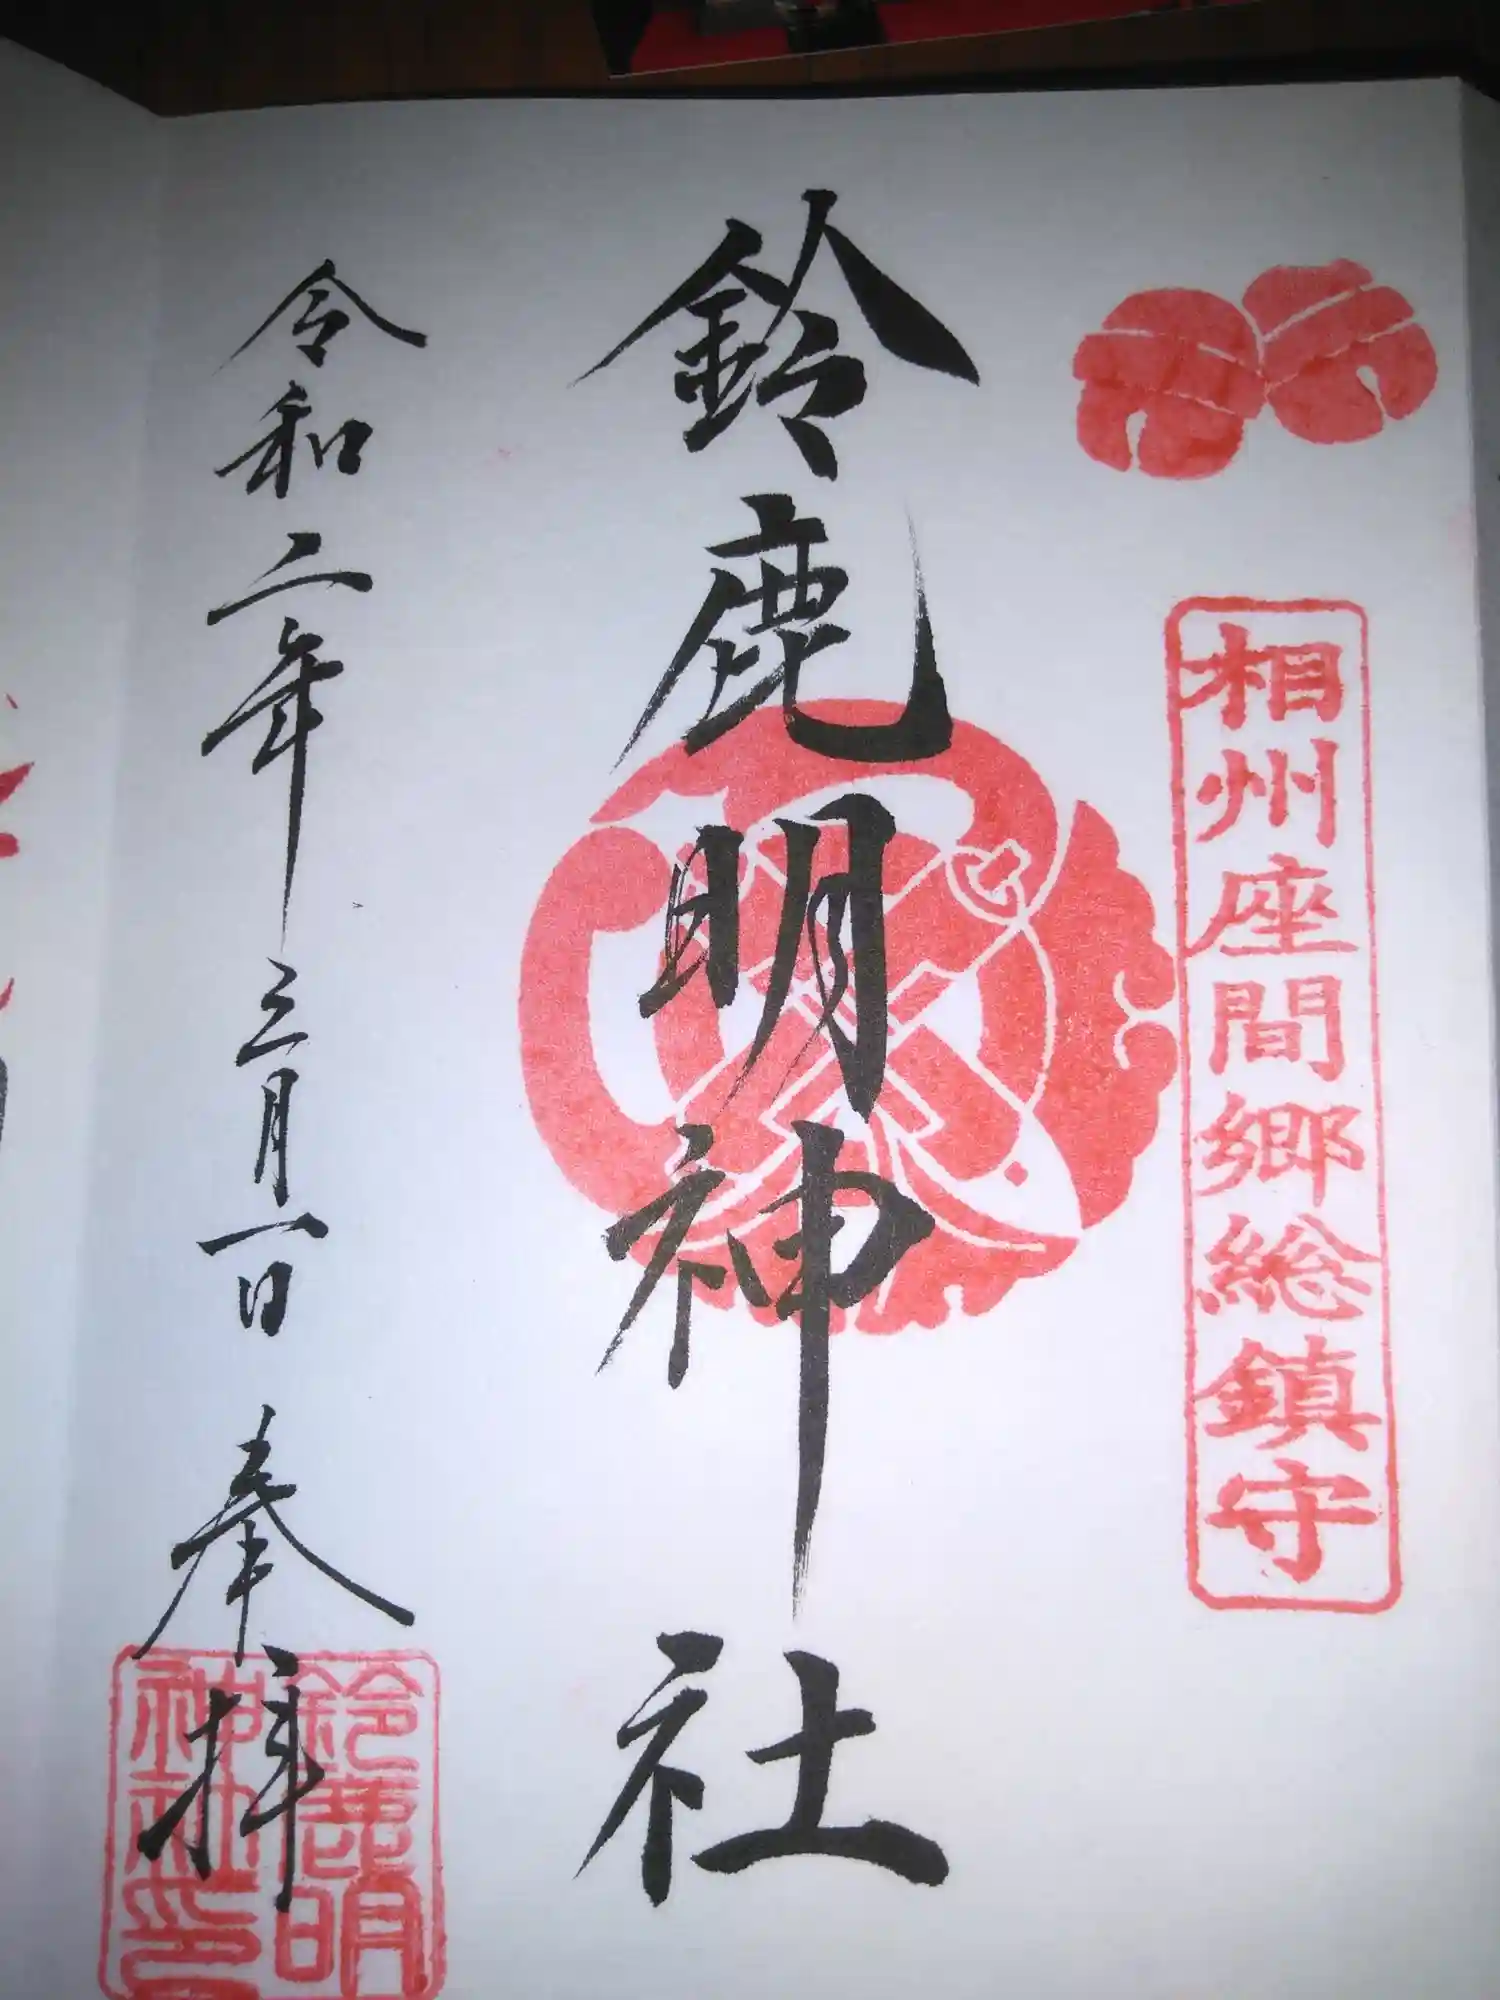 相州座間郷総鎮守
鈴鹿明神社
令和二年三月一日 奉拝
鈴鹿明
神社印